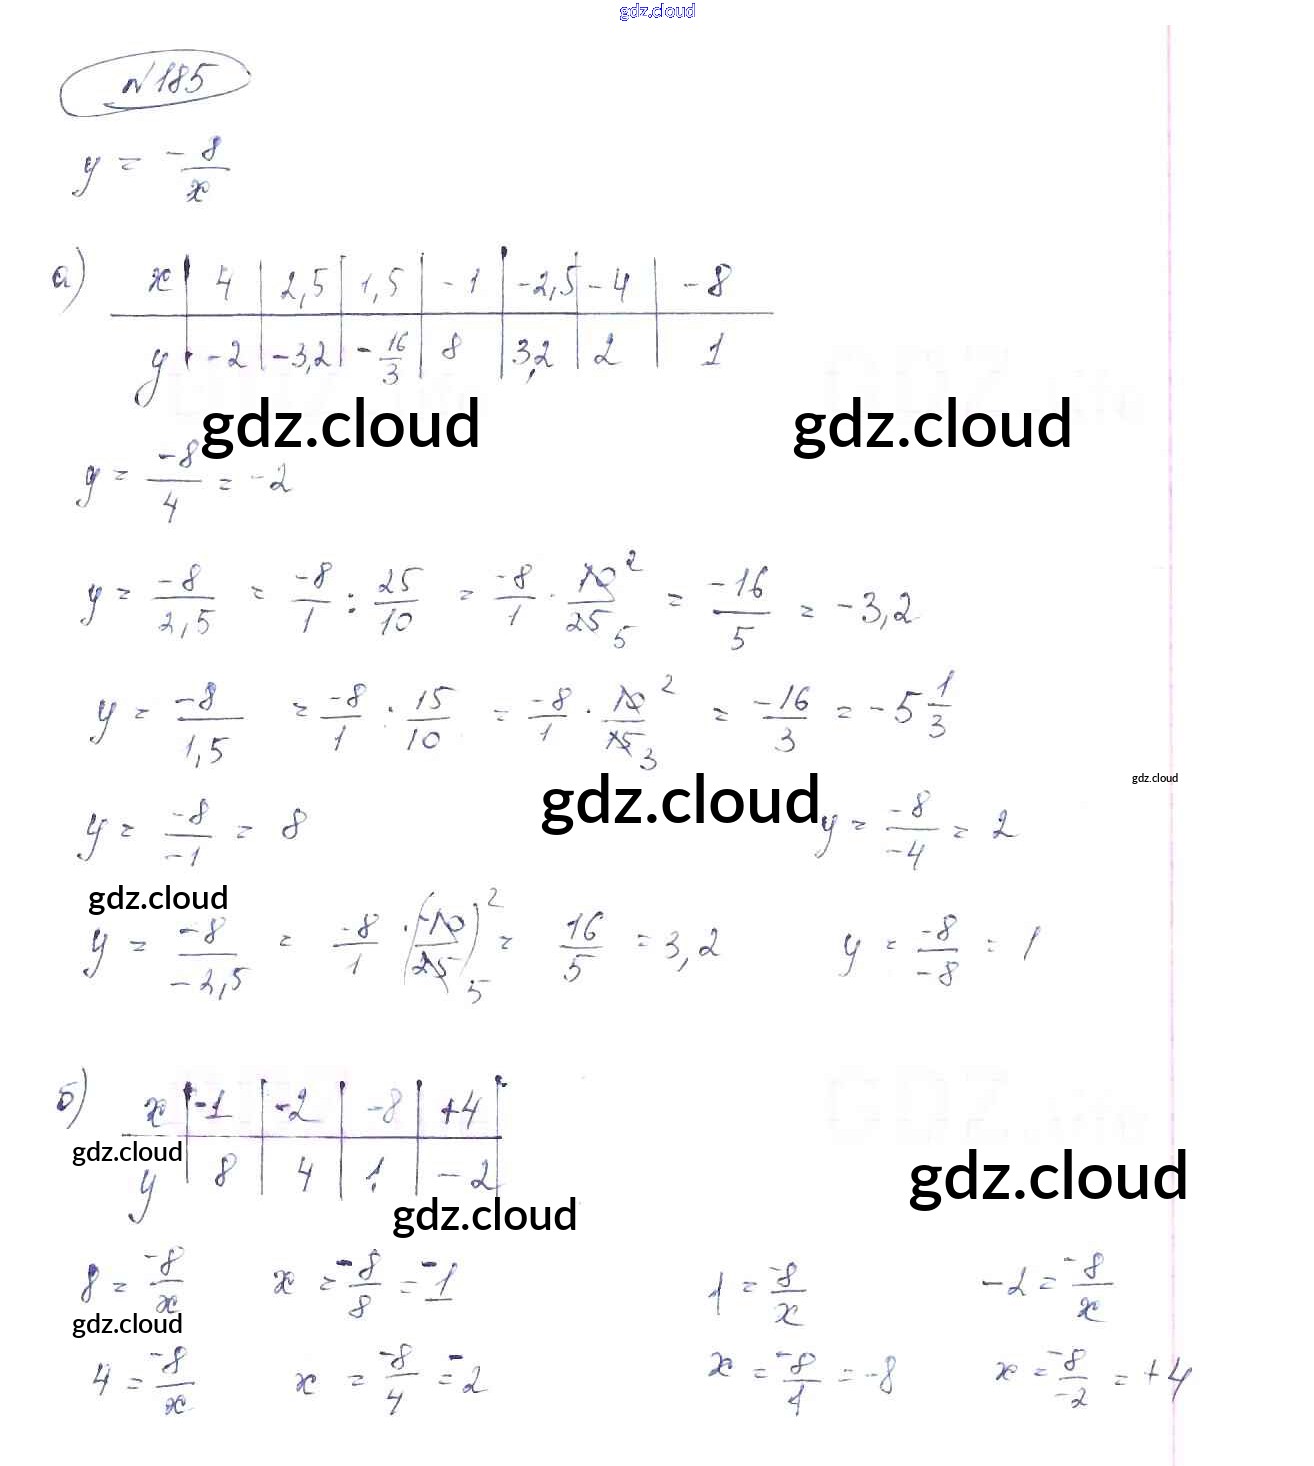 gdz.cloud
№185
y = -8/x
а) x | 4 | 2,5 | 1,5 | -1 | -2,5 | -4 | -8
y | -2 | -3,2 | -16/3 | 8 | 3,2 | 2 | 1
gdz.cloud gdz.cloud
y = -8/4 = -2
y = -8/2,5 = -8/1 : 25/10 = -8/1 · 10/25 2 5 = -16/5 = -3,2
y = -8/1,5 = -8/1 : 15/10 = -8/1 · 10/15 2 3 = -16/3 = -5 1/3
gdz.cloud gdz.cloud
y = -8/-1 = 8 y = -8/-4 = 2
gdz.cloud
y = -8/-2,5 = -8/1 · (-10/25) 2 5 = 16/5 = 3,2 y = -8/-8 = 1
б) x | -1 | -2 | -8 | +4
gdz.cloud
y | 8 | 4 | 1 | -2
gdz.cloud gdz.cloud
8 = -8/x x = -8/8 = -1 1 = -8/x -2 = -8/x
gdz.cloud
4 = -8/x x = -8/4 = -2 x = -8/1 = -8 x = -8/-2 = +4